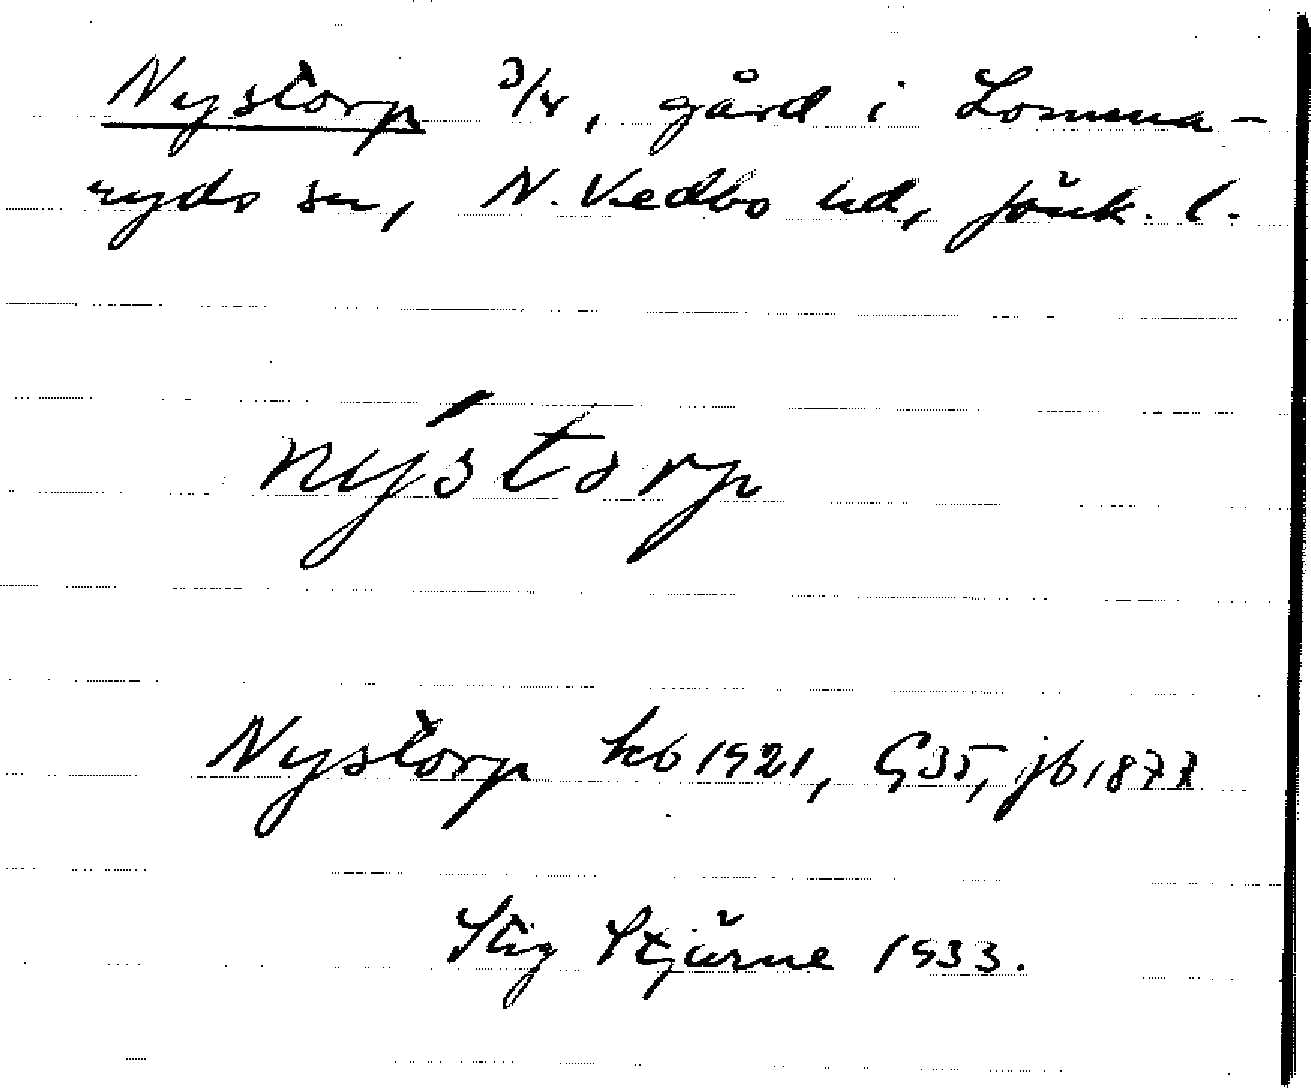 Nystorp 3/4, gård i Lomma-
ryds sn, N. Vedbo hd, Jönk. l.
nýstorp
Nystorp kb 1921, G35, jb 1878
Stig Stjärne 1933.